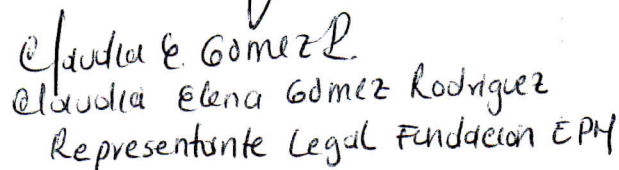 Claudia E. Gómez R.
Claudia Elena Gómez Rodríguez
Representante Legal Fundación EPM